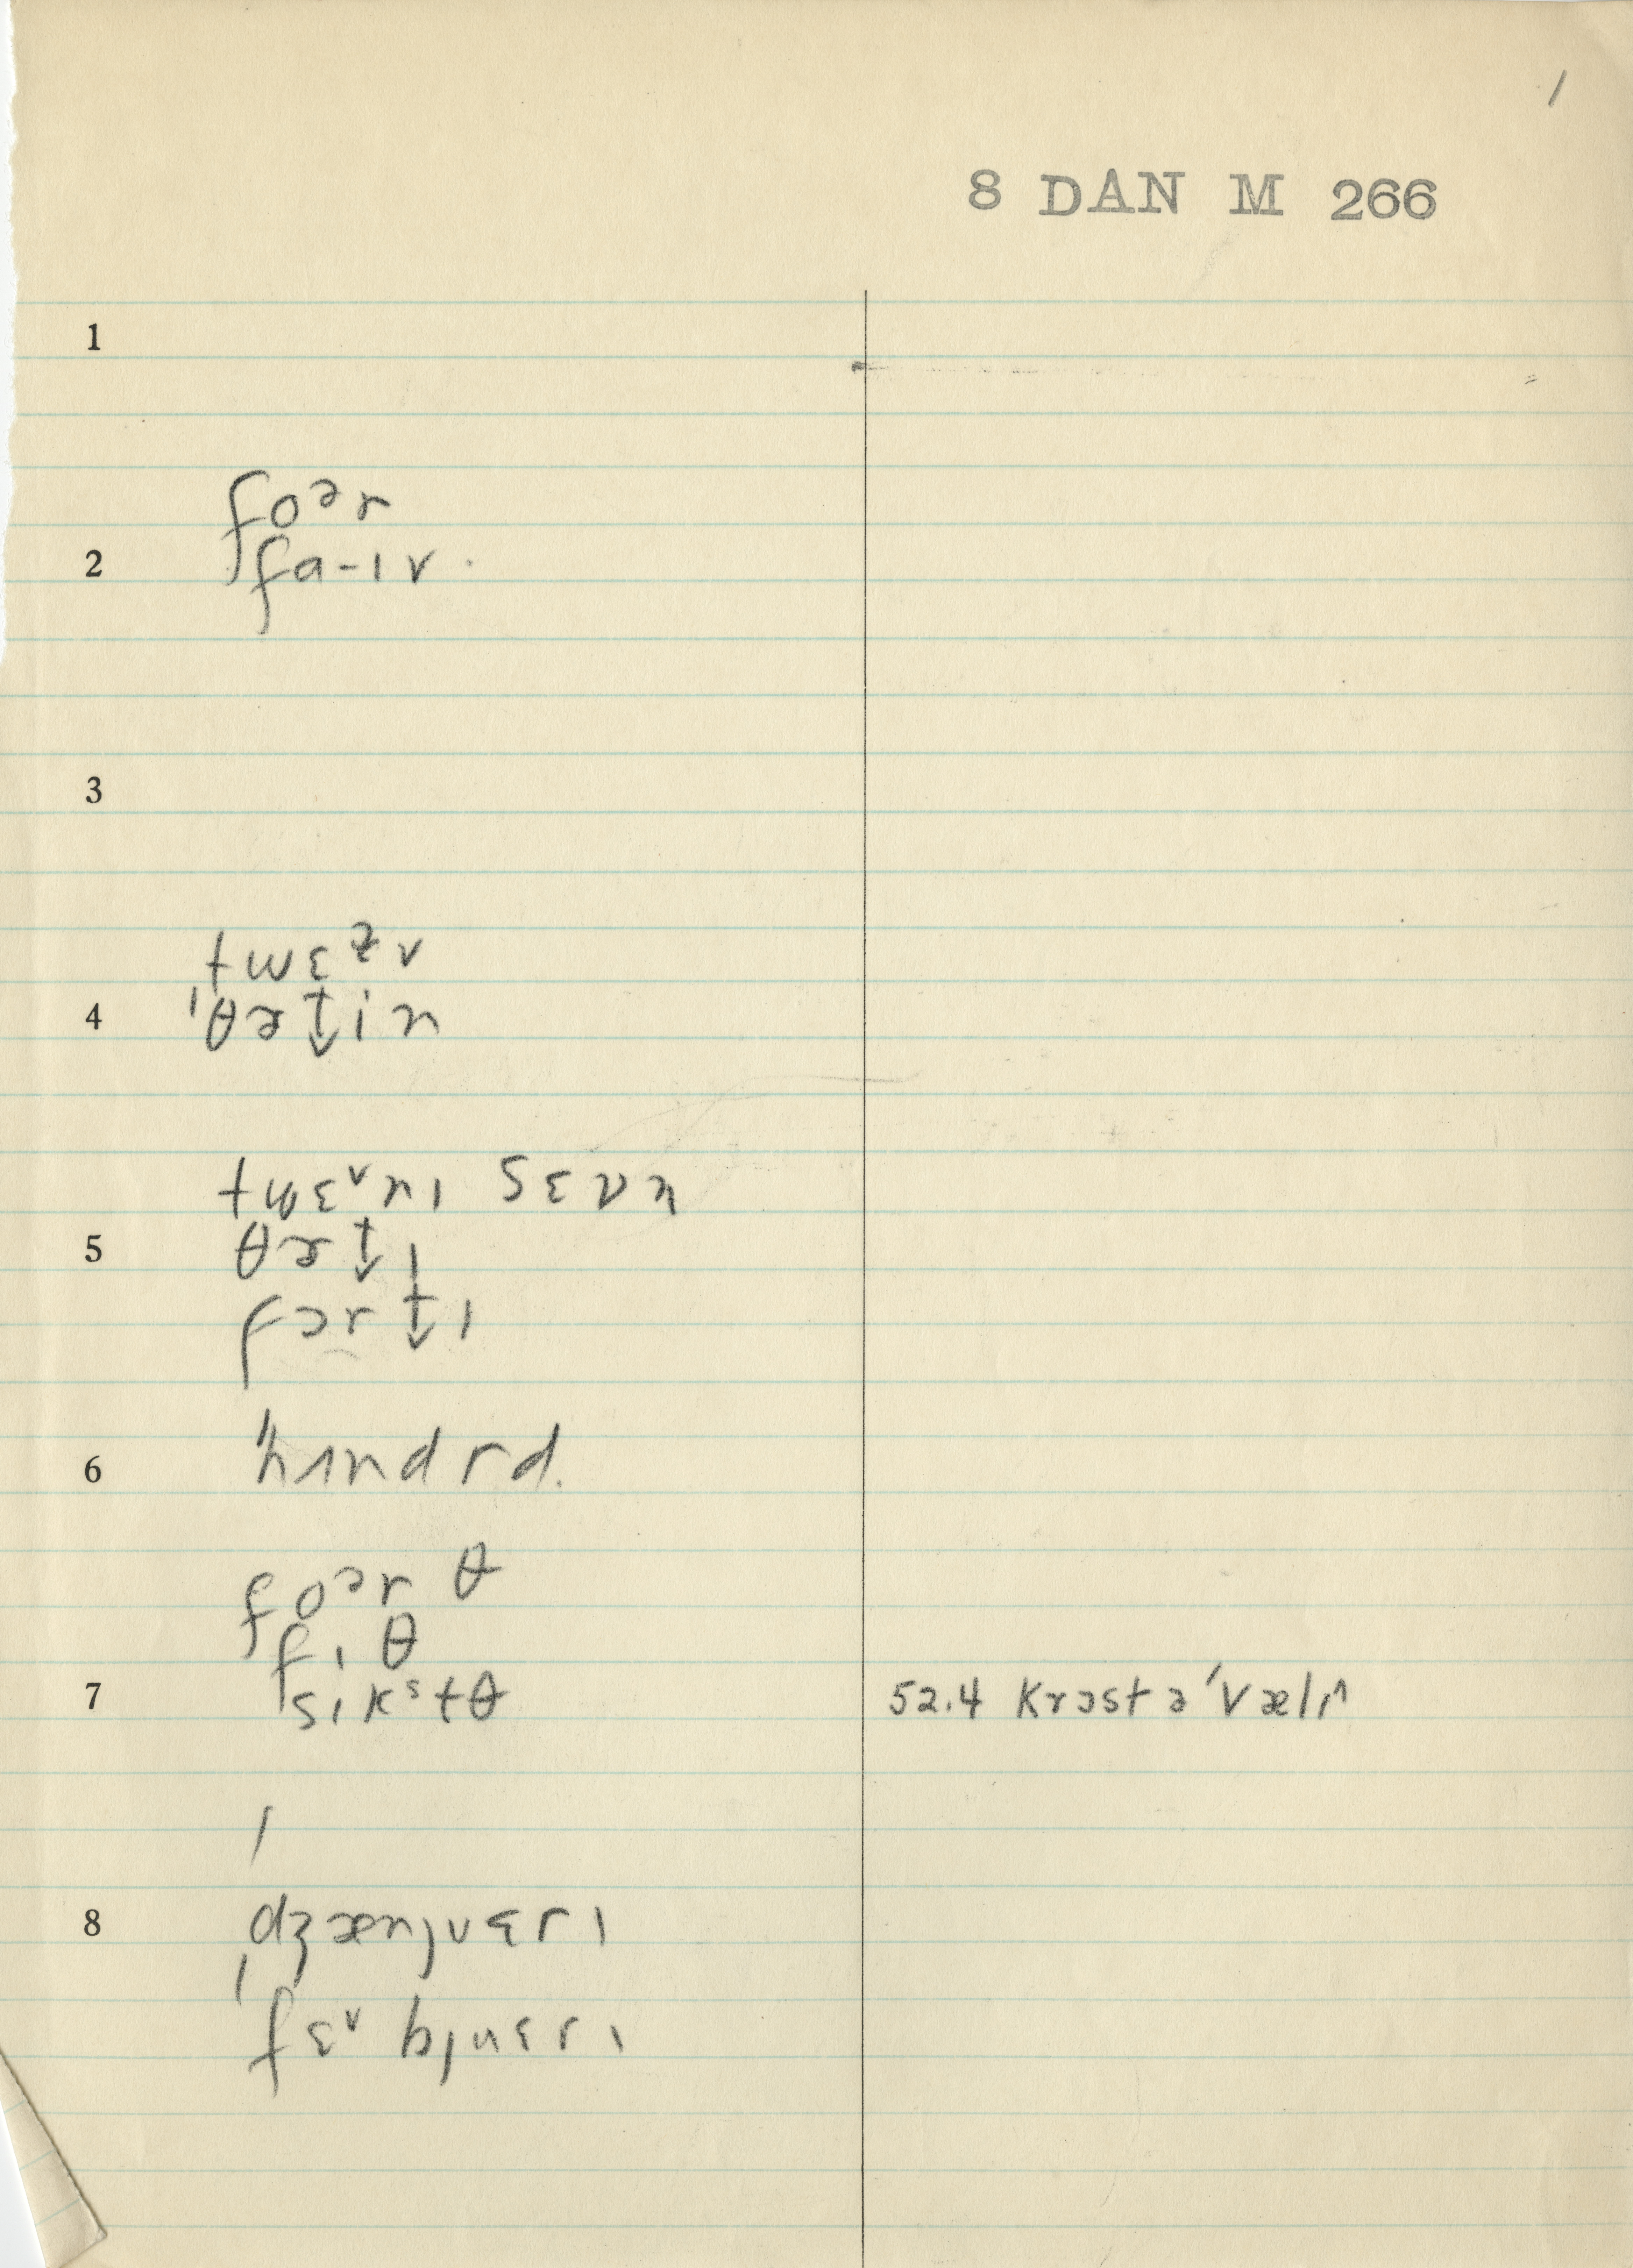 1
8 DAN M 266
1
foᵊr
2 fa-ɪv
3
twɛᶻv
4 'θɚt̬in
twɛᵛnɪ sɛvn
5 θɚt̬ɪ
fɔrt̬ɪ
6 'hʌndrd.
foᵊrθ
fɪθ
7 sɪkˢtθ 52.4 krɔstə'vælɪ^
8 'dʒænjuɛrɪ
'fɛᵛbjuɛrɪ